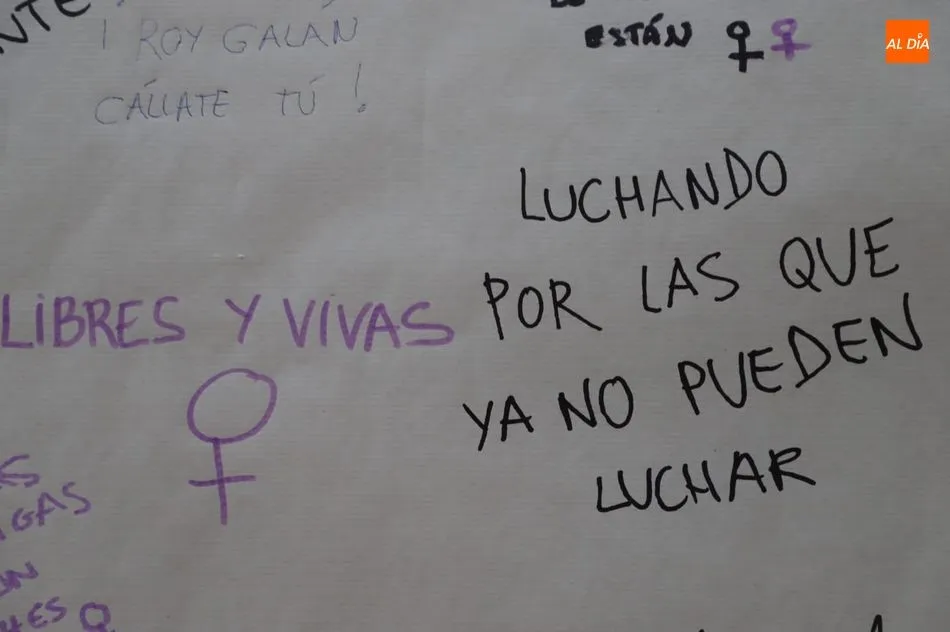 ¡ ROY GALÁN
CÁLLATE TÚ !
ESTÁN
AL DÍA
LUCHANDO
POR LAS QUE
YA NO PUEDEN
LUCHAR
LIBRES Y VIVAS